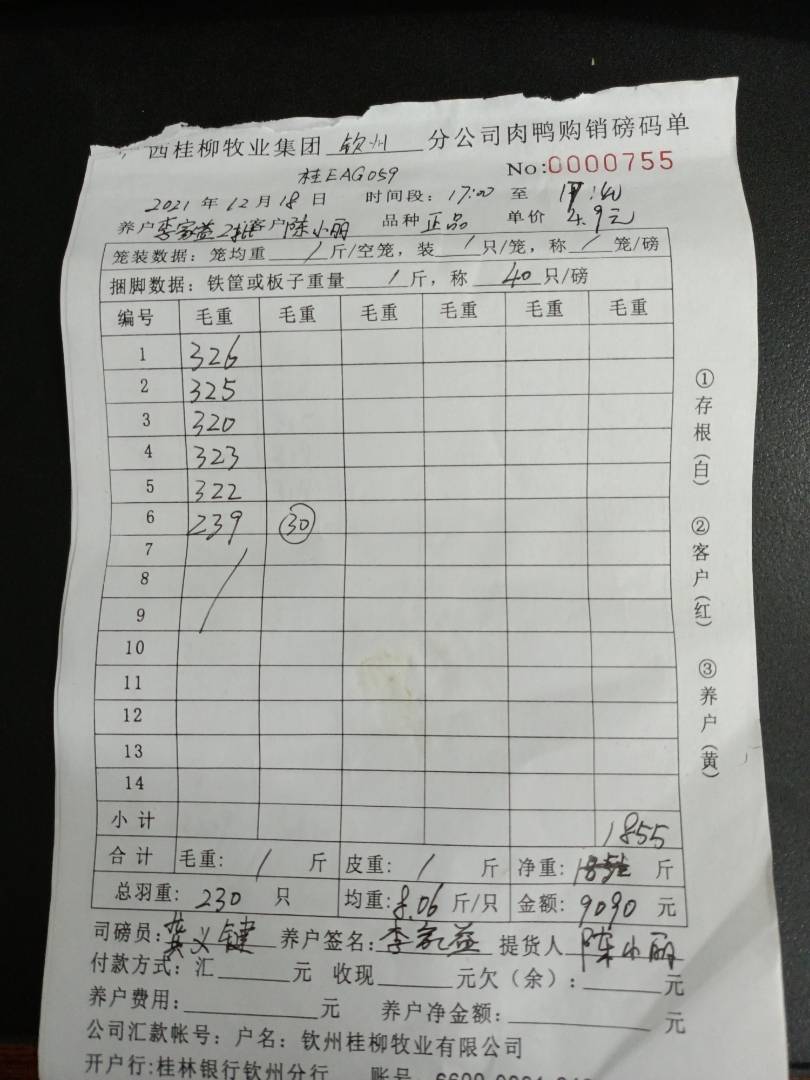 西桂柳牧业集团 钦州 分公司肉鸭购销磅码单
桂EAG059 No:0000755
2021 年 12 月 18 日 时间段: 17:00 至
养户 李家益2批 客户 陈小丽 品种 正品 单价 4.9元
笼装数据: 笼均重 / 斤/空笼, 装 / 只/笼, 称 / 笼/磅
捆脚数据: 铁筐或板子重量 / 斤, 称 40 只/磅
编号 毛重 毛重 毛重 毛重 毛重 毛重
1 326
2 325
3 320
4 323
5 322
6 239 30
7
8
9
10
11
12
13
14
小计 1855
合计 毛重: / 斤 皮重: / 斤 净重: 斤
总羽重: 230 只 均重: 8.06 斤/只 金额: 9090 元
司磅员: 义键 养户签名: 李家益 提货人 陈小丽
付款方式: 汇 元 收现 元欠（余）: 元
养户费用: 元 养户净金额: 元
公司汇款帐号: 户名: 钦州桂柳牧业有限公司
开户行:桂林银行钦州分行 账号
①存根(白) ②客户(红) ③养户(黄)